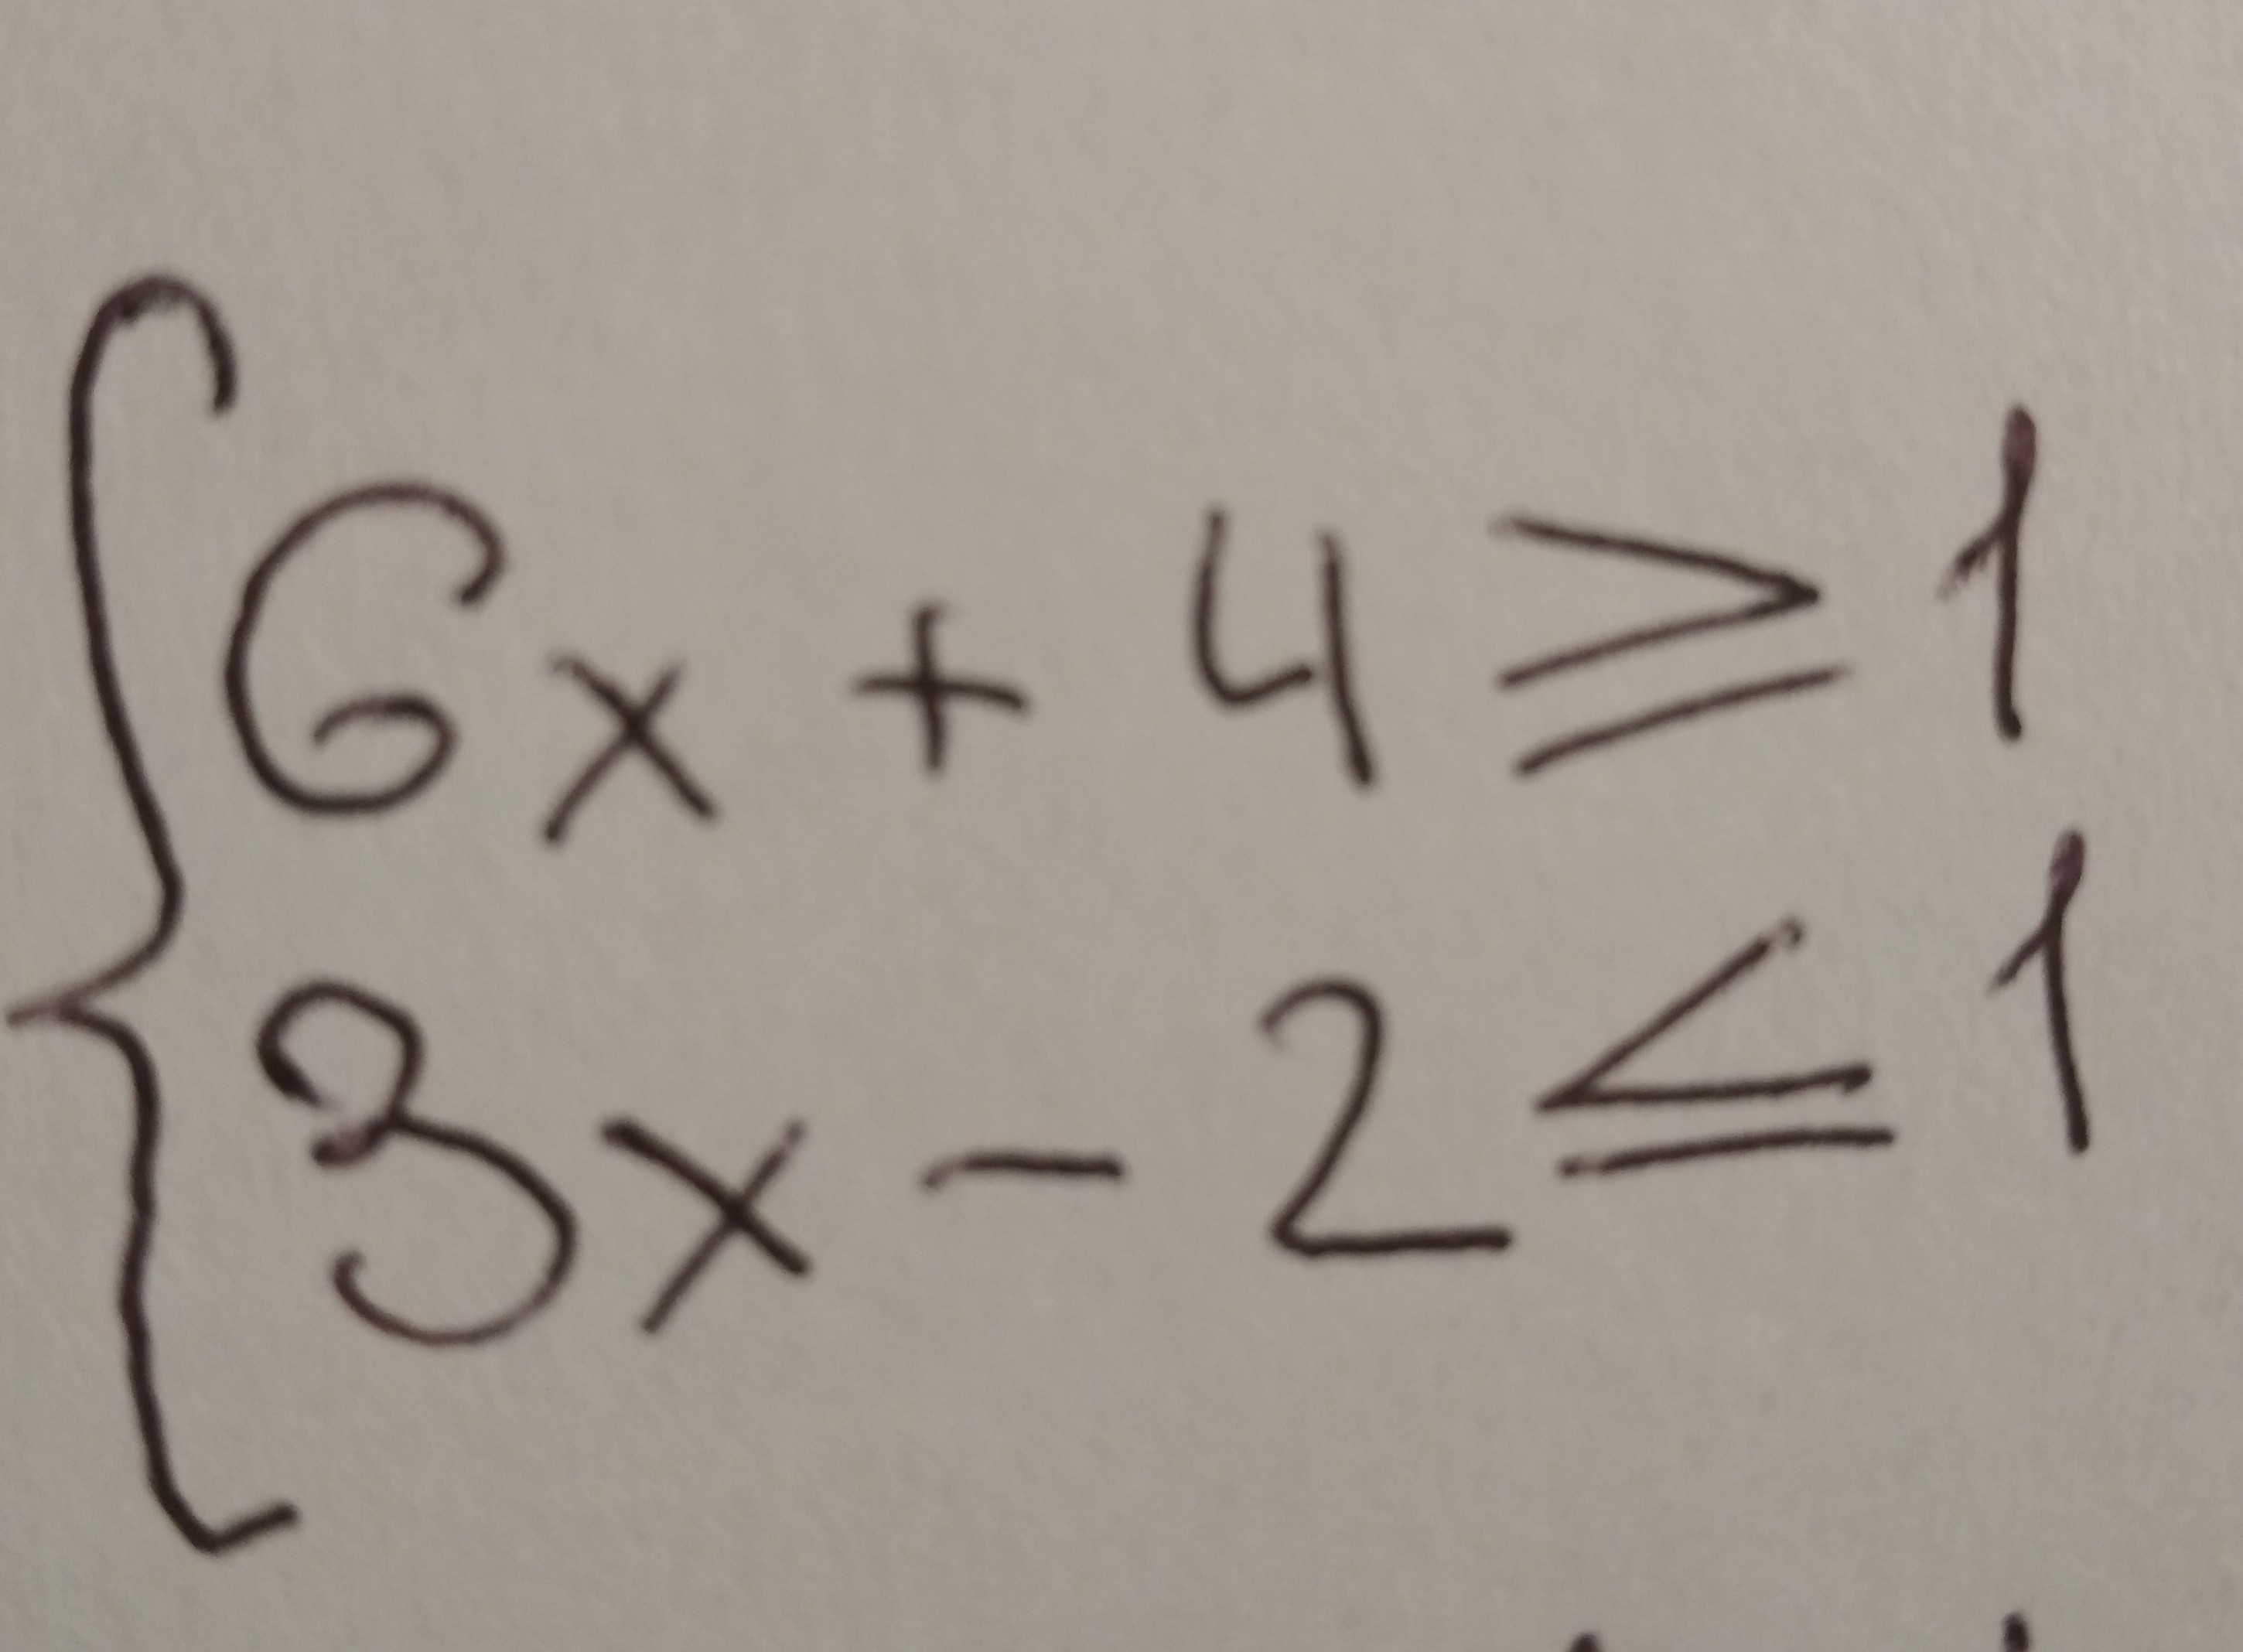 6x + 4 ≥ 1
3x - 2 ≤ 1